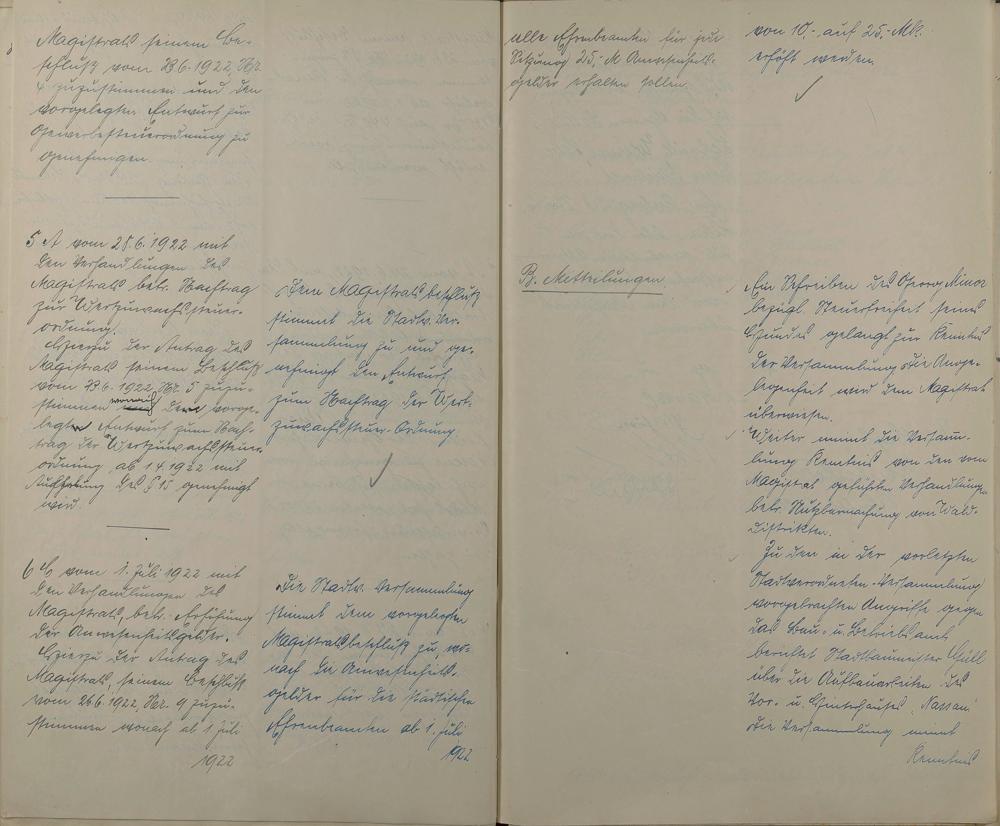 Magistrats seinem Be-
schluß vom 23.6.1922, Nr.
4 zuzustimmen und den
vorgelegten Entwurf zur
Gewerbesteuerordnung zu
genehmigen.
5 A vom 28.6.1922 mit
den Verhandlungen des
Magistrats betr. Nachtrag
zur Wertzuwachssteuer-
ordnung.
Hierzu der Antrag des
Magistrats seinem Beschluß
vom 23.6.1922, Nr. 5 zuzu-
stimmen wonach der vorge-
legte Entwurf zum Nach-
trag der Wertzuwachssteuer-
ordnung ab 1.4.1922 mit
Aufhebung des § 15 genehmigt
wird.
Dem Magistratsbeschluß
stimmt die Stadtv. Ver-
sammlung zu und ge-
nehmigt den Entwurf
zum Nachtrag der Wert-
zuwachssteuer-Ordnung.
6 vom 1. Juli 1922 mit
den Verhandlungen des
Magistrats, betr. Erhöhung
der Anwesenheitsgelder.
Hierzu der Antrag des
Magistrats, seinem Beschluß
vom 26.6.1922, Nr. 9 zuzu-
stimmen wonach ab 1. Juli
1922
Die Stadtv. Versammlung
stimmt dem vorgelegten
Magistratsbeschluß zu, wo-
nach die Anwesenheits-
gelder für die städtischen
Ehrenbeamten ab 1. Juli
1922
alle Ehrenbeamten für jede
Sitzung 25,- M Anwesenheits-
gelder erhalten sollen.
von 10,- auf 25,- Mk.
erhöht werden.
B. Mitteilungen
Ein Schreiben des Georg
bezügl. Steuerfreiheit seines
Hundes gelangt zur Kenntnis
der Versammlung. Die Ange-
legenheit wird dem Magistrat
überwiesen.
Weiter nimmt die Versamm-
lung Kenntnis von den vom
Magistrat geführten Verhandlungen
betr. Nutzbarmachung von Wald-
distrikten.
Zu den in der vorletzten
Stadtverordneten-Versammlung
vorgebrachten Angriffe gegen
das Bau- u. Betriebsamt
berichtet Stadtbaumeister
über die Aufbauarbeiten des
Vor- u. Hinterhauses Nassau
Die Versammlung nimmt
Kenntnis